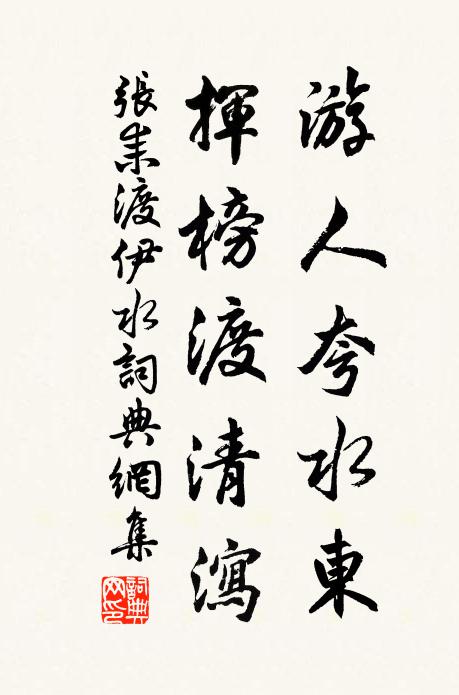 游人夸水東
揮榜渡清瀉
張耒渡伊水詞典網集
詞典網印